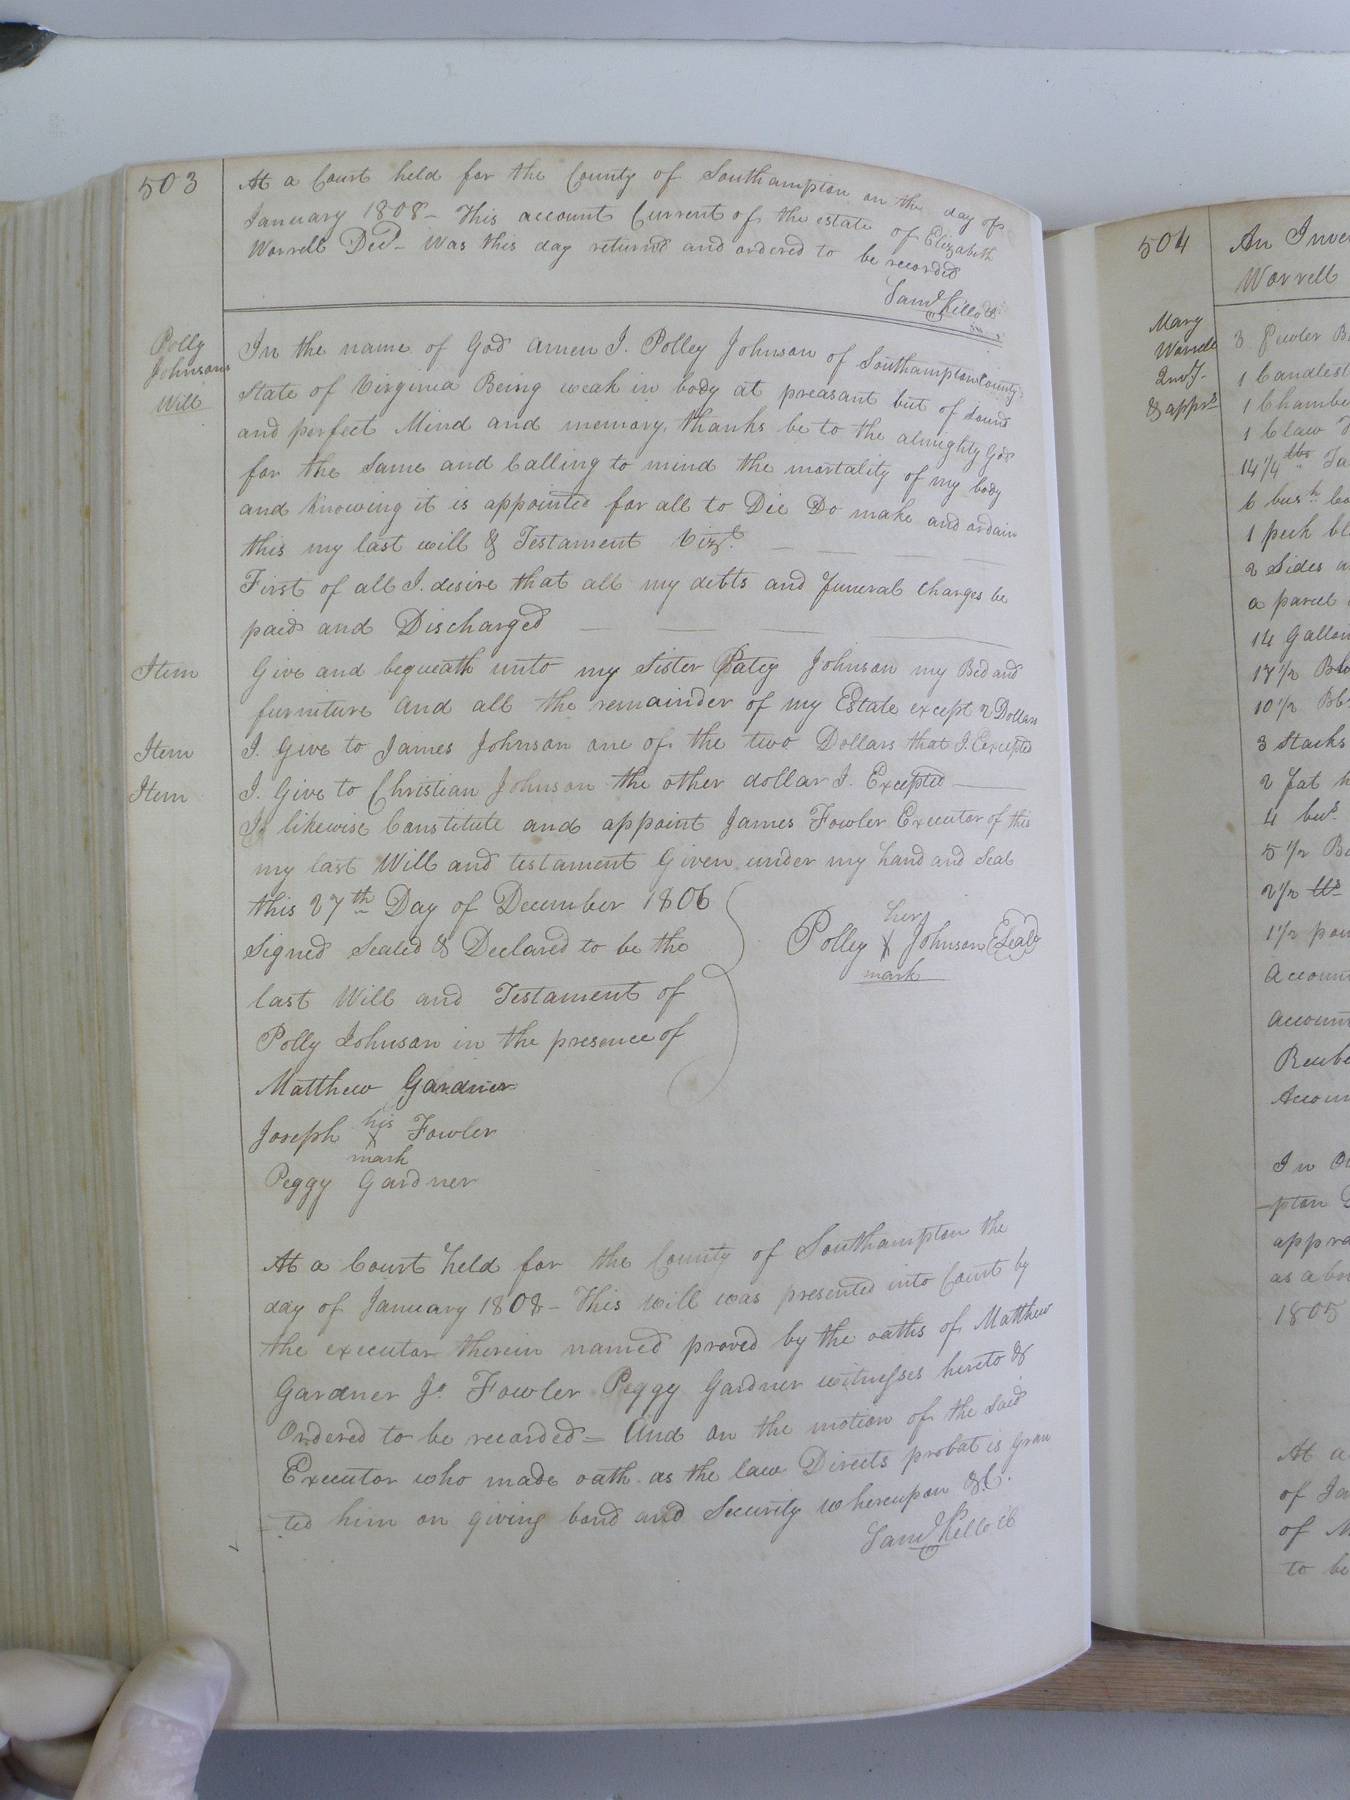 503
At a Court held for the County of Southampton on the day of
January 1808 - This account Current of the estate of Elizabeth
Worrell Decd - Was this day returnd and ordered to be recorded
Saml Kello Ck
Polly
Johnsons
Will
In the name of God amen I. Polley Johnson of Southampton County
State of Virginia Being weak in body at preasant but of sound
and perfect Mind and memory, thanks be to the almighty God
for the same and Calling to mind the mortality of my body
and knowing it is appointed for all to Die Do make and ordain
this my last will & Testament Vizt.
First of all I. desire that all my debts and funeral Charges be
paid and Discharged
Item Give and bequeath unto my Sister Patey Johnson my Bed and
furniture and all the remainder of my Estate except 2 Dollars
Item I. Give to James Johnson one of the two Dollars that I. Excepted
Item I. Give to Christian Johnson the other dollar I. Excepted
I likewise Constitute and appoint James Fowler Executor of this
my last Will and testament Given under my hand and Seal
this 27th Day of December 1806
Signed Sealed & Declared to be the
last Will and Testament of
Polly Johnson in the presence of
Matthew Gardner
Joseph his X mark Fowler
Peggy Gardner
her
Polley X Johnson (Seal)
mark
At a Court held for the County of Southampton the
day of January 1808 - This will was presented into Court by
the executor therein named proved by the oaths of Matthew
Gardner Jo. Fowler Peggy Gardner witnesses hereto &
Ordered to be recorded = And on the motion of the said
Executor who made oath as the law Directs probat is gran
=ted him on giving bond and Security whereupon &C.
Saml Kello Ck
504
An Inve
Worrell
Mary
Worrell
Invy.
& apprt
3 Pewter B
1 Candlest
1 Chambe
1 Claw
14 1/4 lbs Ta
6 bush
1 peck bl
2 Sides
a parcel
14 Gallon
17 1/2
10 1/2 Bb
3 Stacks
2 fat h
4 bus
5 1/2 Ba
2 1/2
1 1/2 pou
Accoun
account
Reube
Accoun
In O
-pton
appra
as abo
1805
At a
of Ja
of M
to be